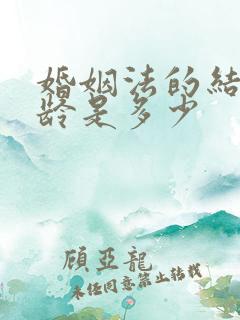 婚姻法的結
龄是多少
顾亞龍
未经同意禁止转载